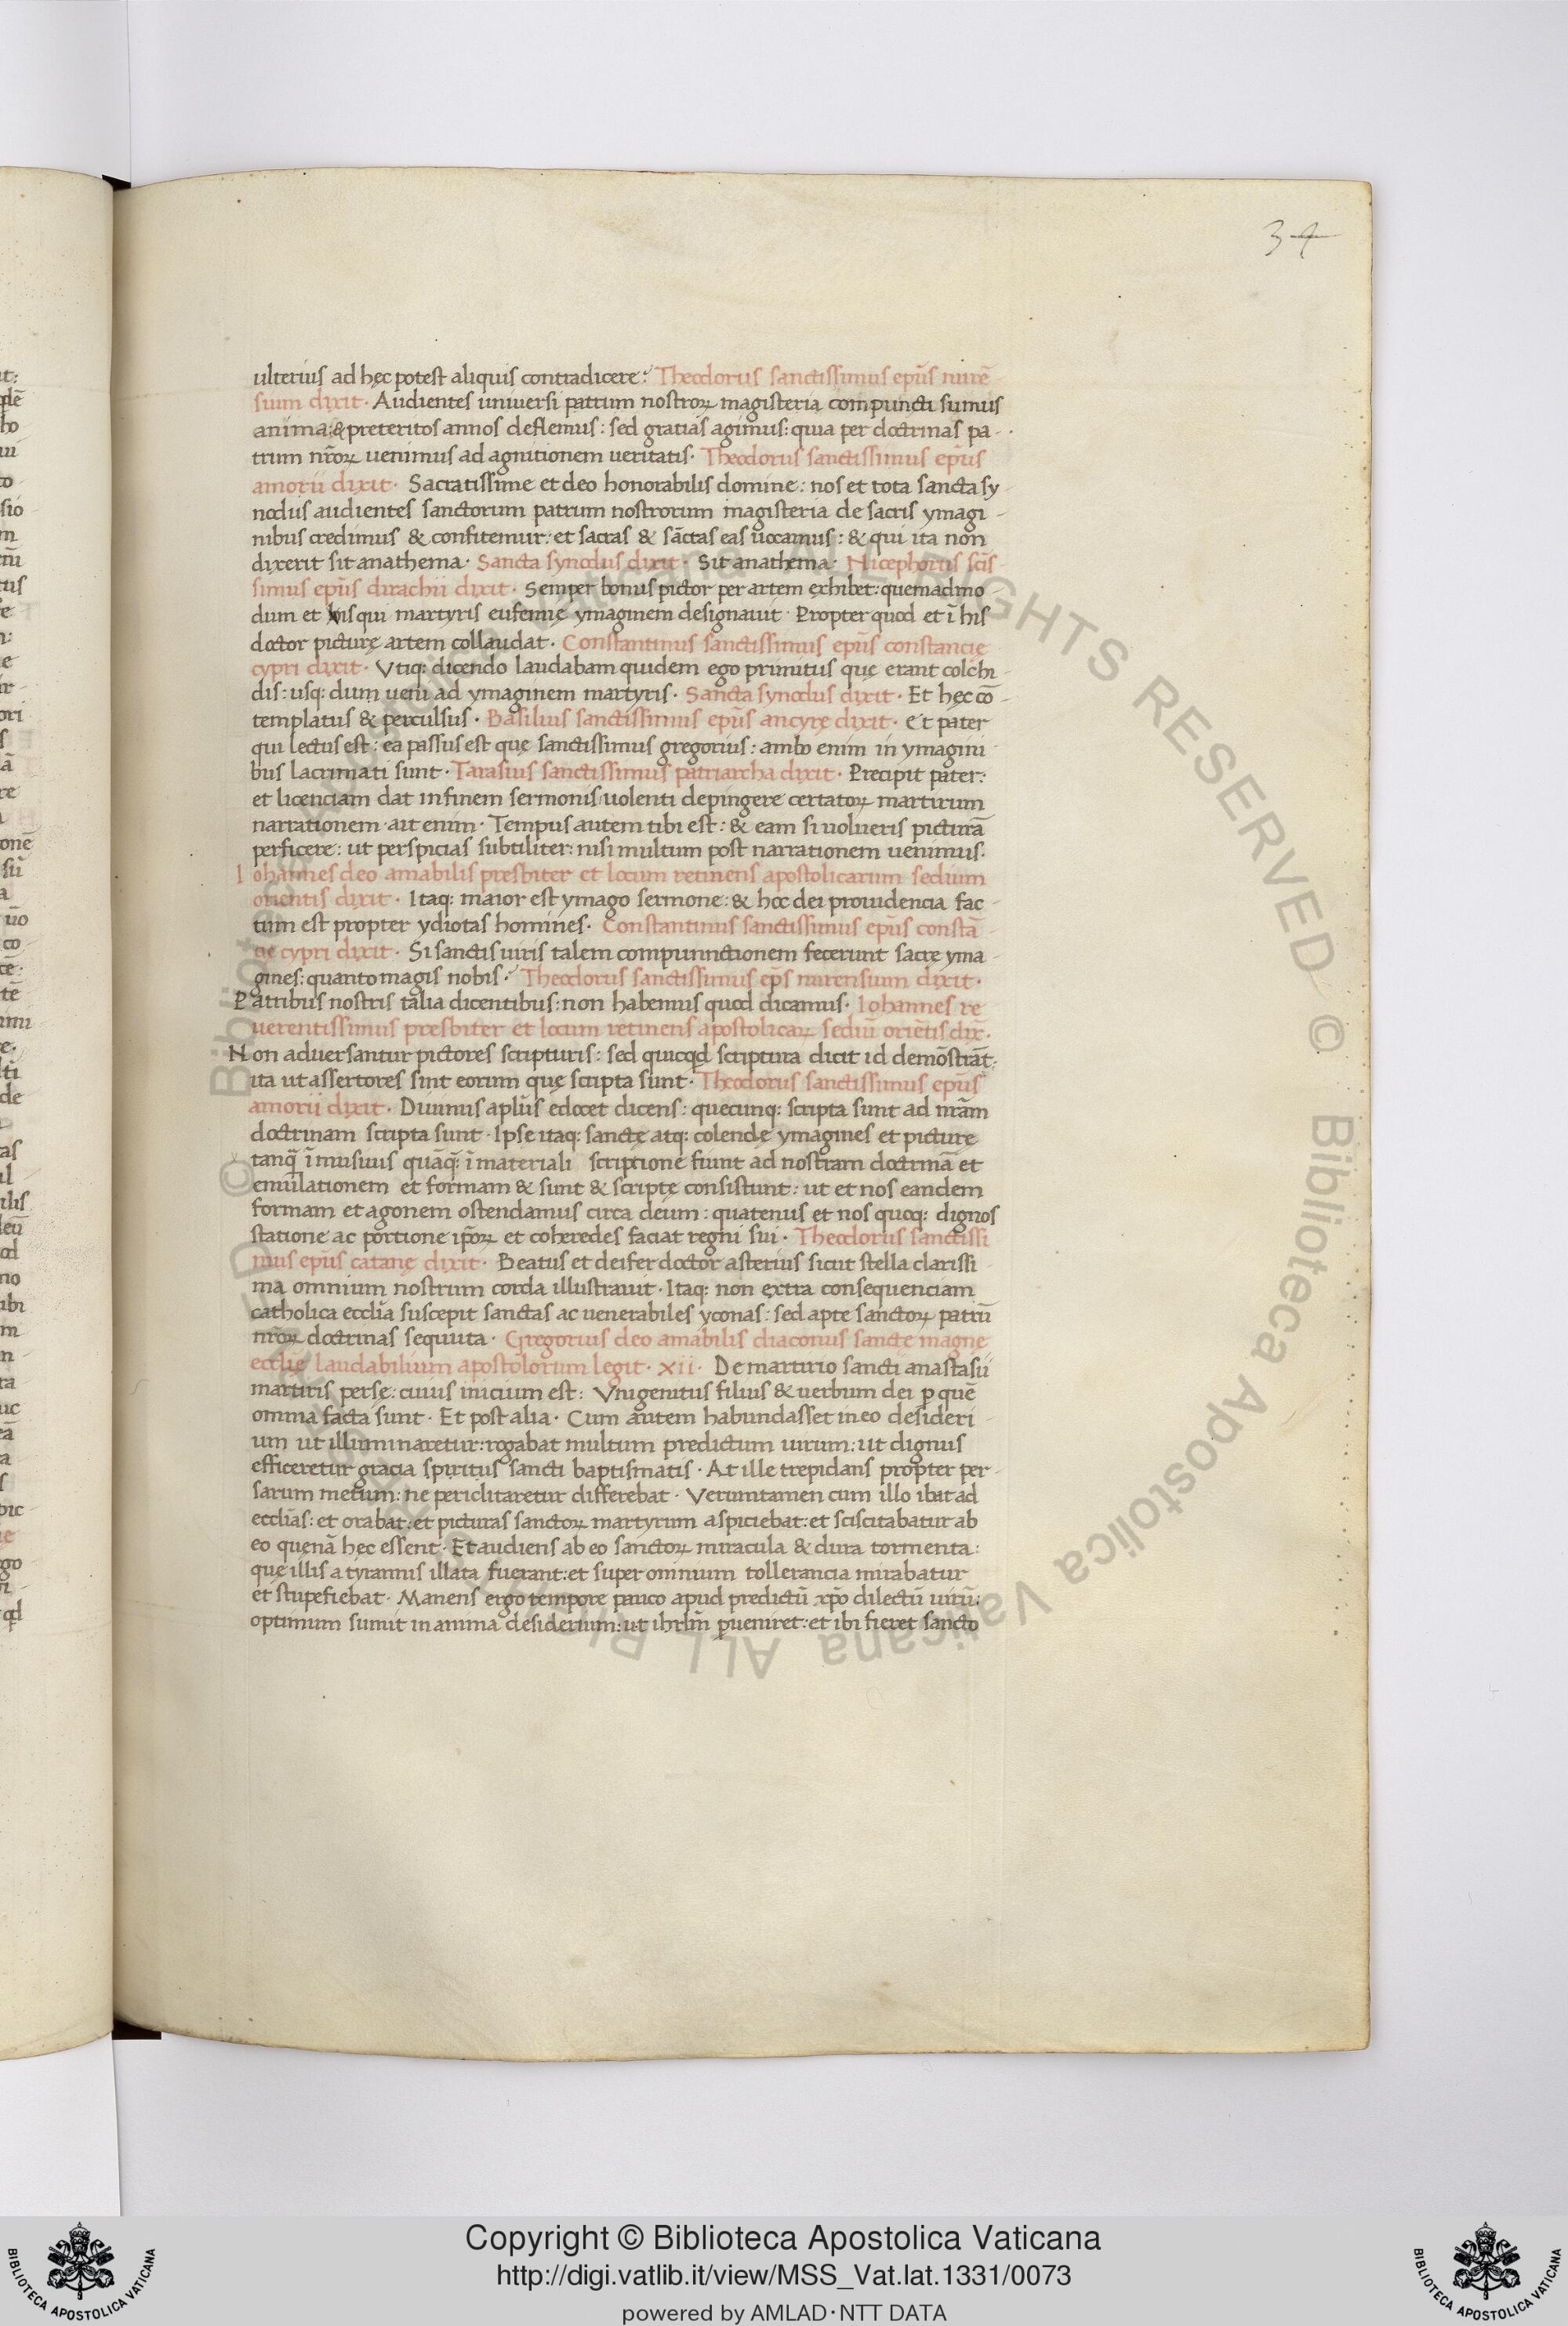 34
ulterius ad hęc potest aliquis contradicere? Theodorus sanctissimus ep̄us nirē
sium dixit · Audientes universi patrum nostroꝝ magisteria compuncti sumus
anima: & preteritos annos deflemus: sed gratias agimus: quia per doctrinas pa-
trum nr̄oꝝ uenimus ad agnitionem ueritatis · Theodorus sanctissimus ep̄us
amorii dixit · Sacratissime et deo honorabilis domine: nos et tota sancta sy
nodus audientes sanctorum patrum nostrorum magisteria de sacris ymagi-
nibus credimus & confitemur: et sacras & sāctas eas uocamus: & qui ita non
dixerit sit anathema · Sancta synodus dixit · Sit anathema · Nicephorus sc̄is
simus ep̄us dirachii dixit · Semper bonus pictor per artem exhibet: quemadmo-
dum et his qui martyris eufemię ymaginem designauit · Propter quod et ī his
doctor picturę artem collaudat · Constantinus sanctissimus ep̄us constancię
cypri dixit · Vtiq: dicendo laudabam quidem ego primitus quę erant colchi-
dis: usq: dum ueni ad ymaginem martyris · Sancta synodus dixit · Et hęc cō-
templatus & perculsus · Basilius sanctissimus ep̄us ancyrę dixit · Et pater
qui lectus est: ea passus est quę sanctissimus gregorius: ambo enim in ymagini-
bus lacrimati sunt · Tarasius sanctissimus patriarcha dixit · Precipit pater:
et licenciam dat in finem sermonis uolenti depingere certatoꝝ martirum
narrationem · ait enim · Tempus autem tibi est: & eam si uolueris picturā
perficere: ut perspicias subtiliter: nisi multum post narrationem uenimus.
Iohannes deo amabilis presbiter et locum retinens apostolicarum sedium
orientis dixit · Itaq: maior est ymago sermone: & hoc dei prouidencia fac-
tum est propter ydiotas homines · Constantinus sanctissimus ep̄us constā-
cię cypri dixit · Si sanctis uiris talem compunnctionem fecerunt sacre yma-
gines: quanto magis nobis? Theodorus sanctissimus ep̄s nirensium dixit ·
Patribus nostris talia dicentibus: non habemus quod dicamus · Iohannes re
uerentissimus presbiter et locum retinens apostolicaꝝ sediū oriētis dix̄ ·
Non aduersantur pictores scripturis: sed quicqd scriptura dicit id demōstrāt:
ita ut assertores sint eorum quę scripta sunt · Theodorus sanctissimus ep̄us
amorii dixit · Diuinus apl̄us edocet dicens: quecunq: scripta sunt ad nr̄am
doctrinam scripta sunt · Ipse itaq: sanctę atq: colendę ymagines et picturę
tanq̄ ī musiuis quāq̄: ī materiali scriptione fiunt ad nostram doctrinā et
emulationem et formam & sunt & scriptę consistunt: ut et nos eandem
formam et agonem ostendamus circa deum: quatenus et nos quoq: dignos
statione ac portione ip̄oꝝ et coheredes faciat regni sui · Theodorus sanctissi
mus ep̄us catanę dixit · Beatus et deifer doctor asterius sicut stella clarissi
ma omnium nostrum corda illustrauit · Itaq: non extra consequenciam
catholica ecclīa suscepit sanctas ac uenerabiles yconas: sed apte sanctoꝝ patrū
nr̄oꝝ doctrinas sequuta · Gregorius deo amabilis diaconus sancte magne
ecclīe laudabilium apostolorum legit · xii · De martirio sancti anastasii
martiris perse: cuius inicium est: Vnigenitus filius & uerbum dei p quē
omnia facta sunt · Et post alia · Cum autem habundasset in eo desideri-
um ut illuminaretur: rogabat multum predictum uirum: ut dignus
efficeretur gracia spiritus sancti baptismatis · At ille trepidans propter per-
sarum metum: ne periclitaretur differebat · Verumtamen cum illo ibat ad
ecclīas: et orabat: et picturas sanctoꝝ martyrum aspiciebat: et sciscitabatur ab
eo quenā hęc essent · Et audiens ab eo sanctoꝝ miracula & dura tormenta:
quę illis a tyrannis illata fuerant: et super omnium tollerancia mirabatur
et stupefiebat · Manens ergo tempore pauco apud predictū xp̄o dilectū uirū:
optimum sumit in anima desiderium: ut ihrl̄m pueniret: et ibi fieret sancto
Copyright © Biblioteca Apostolica Vaticana
http://digi.vatlib.it/view/MSS_Vat.lat.1331/0073
powered by AMLAD·NTT DATA
BIBLIOTECA APOSTOLICA VATICANA
BIBLIOTECA APOSTOLICA VATICANA